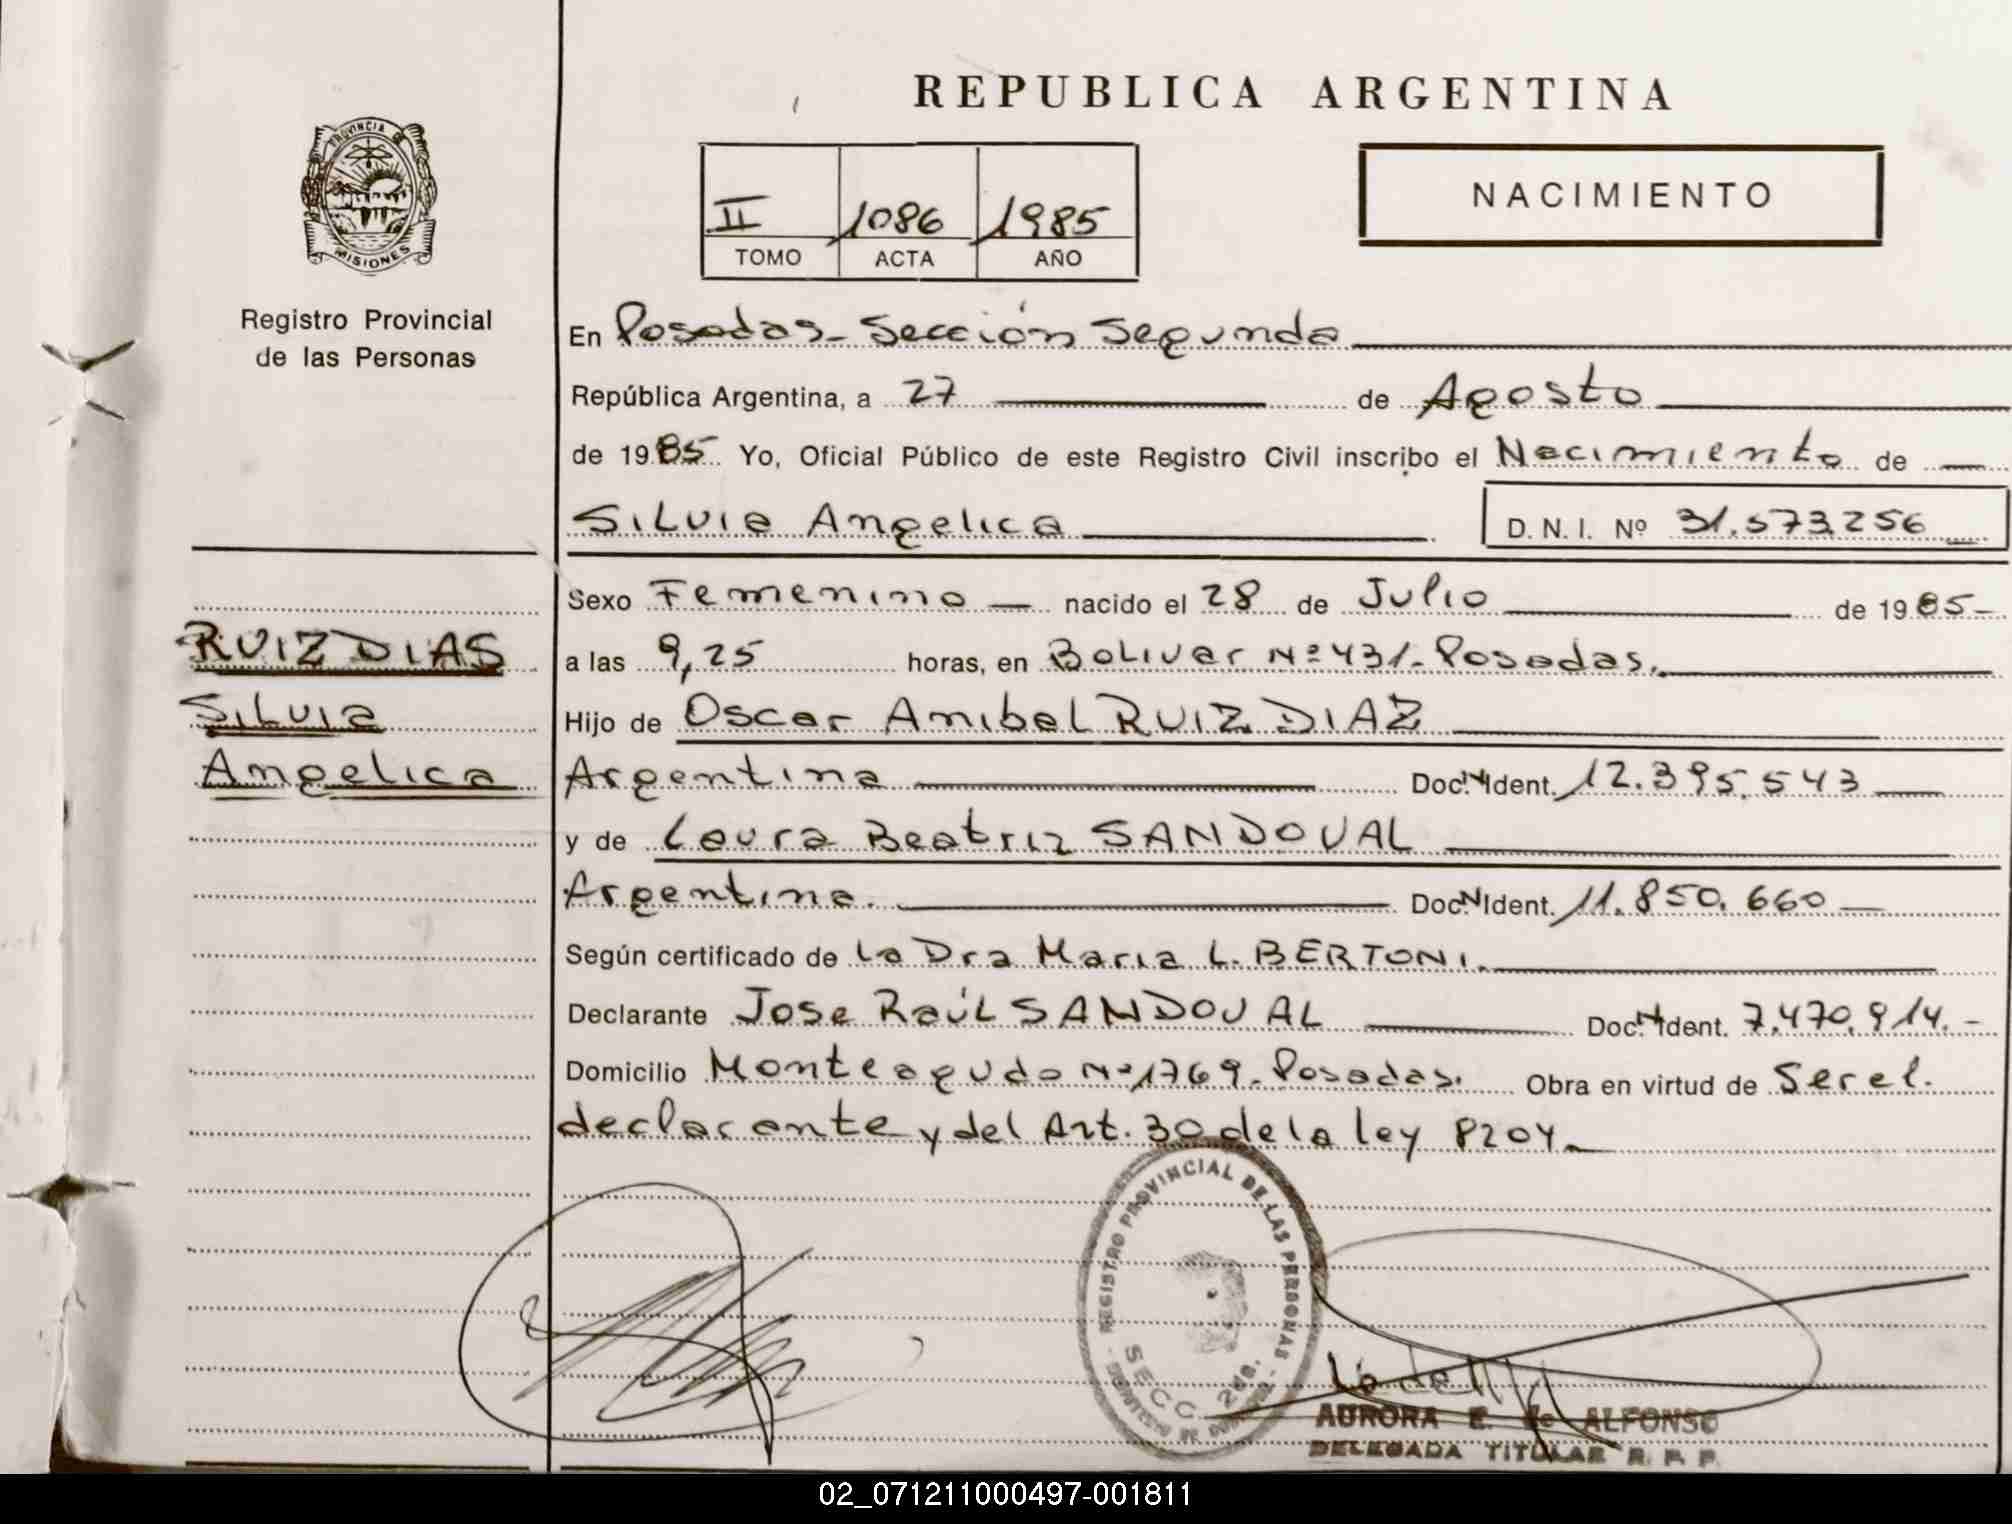 PROVINCIA DE
MISIONES
Registro Provincial
de las Personas
REPUBLICA ARGENTINA
II 1086 1985
TOMO ACTA AÑO
NACIMIENTO
En Posadas - Sección Segunda
República Argentina, a 27 de Agosto
de 1985 Yo, Oficial Público de este Registro Civil inscribo el Nacimiento de
Silvia Angelica D. N. I. Nº 31.573.256
RUIZ DIAS
Silvia
Angelica
Sexo Femenino nacido el 28 de Julio de 1985-
a las 9,25 horas, en Bolivar Nº 431. Posadas.
Hijo de Oscar Anibal RUIZ DIAZ
Argentina Doc. N. Ident. 12.395.543
y de Laura Beatriz SANDOVAL
Argentina. Doc. N. Ident. 11.850.660
Según certificado de la Dra Maria L. BERTONI.
Declarante Jose Raúl SANDOVAL Doc. N. Ident. 7.470.914.-
Domicilio Monteagudo Nº 1769. Posadas. Obra en virtud de Ser el
declarante y del Art. 30 de la ley 8204
REGISTRO PROVINCIAL DE LAS PERSONAS
SECC. 2da.
AURORA E. de ALFONSO
DELEGADA TITULAR R. P. P.
02_071211000497-001811